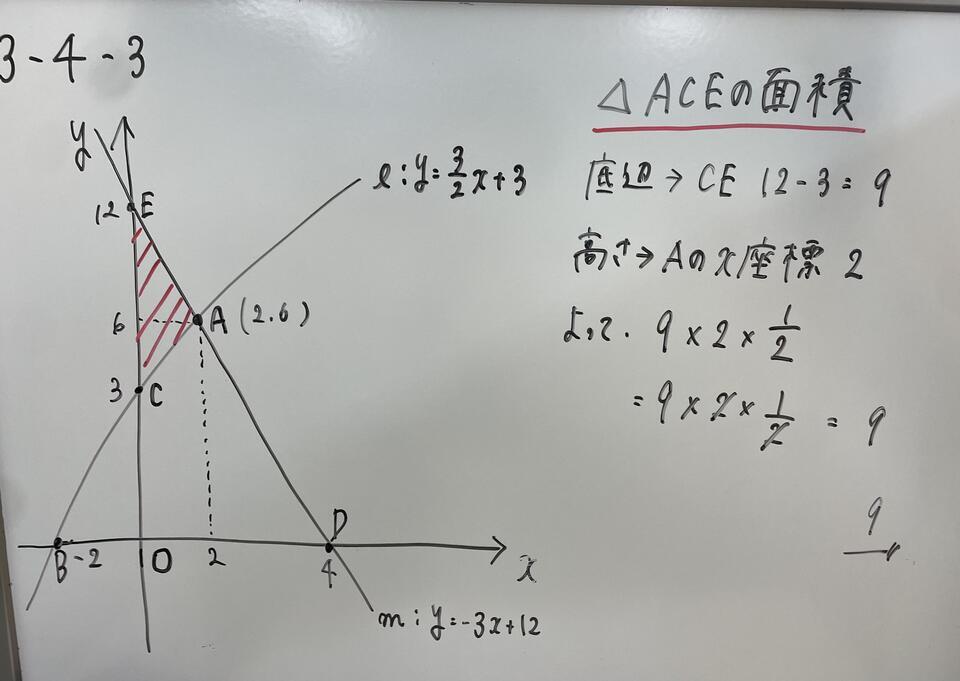 3-4-3
△ACEの面積
底辺→CE 12-3=9
高さ→Aのx座標 2
よって. 9×2×1/2
=9×2×1/2 = 9
9
y
ℓ:y=3/2x+3
12 E
6
A(2.6)
3 C
D
B -2 O 2 4 x
m:y=-3x+12